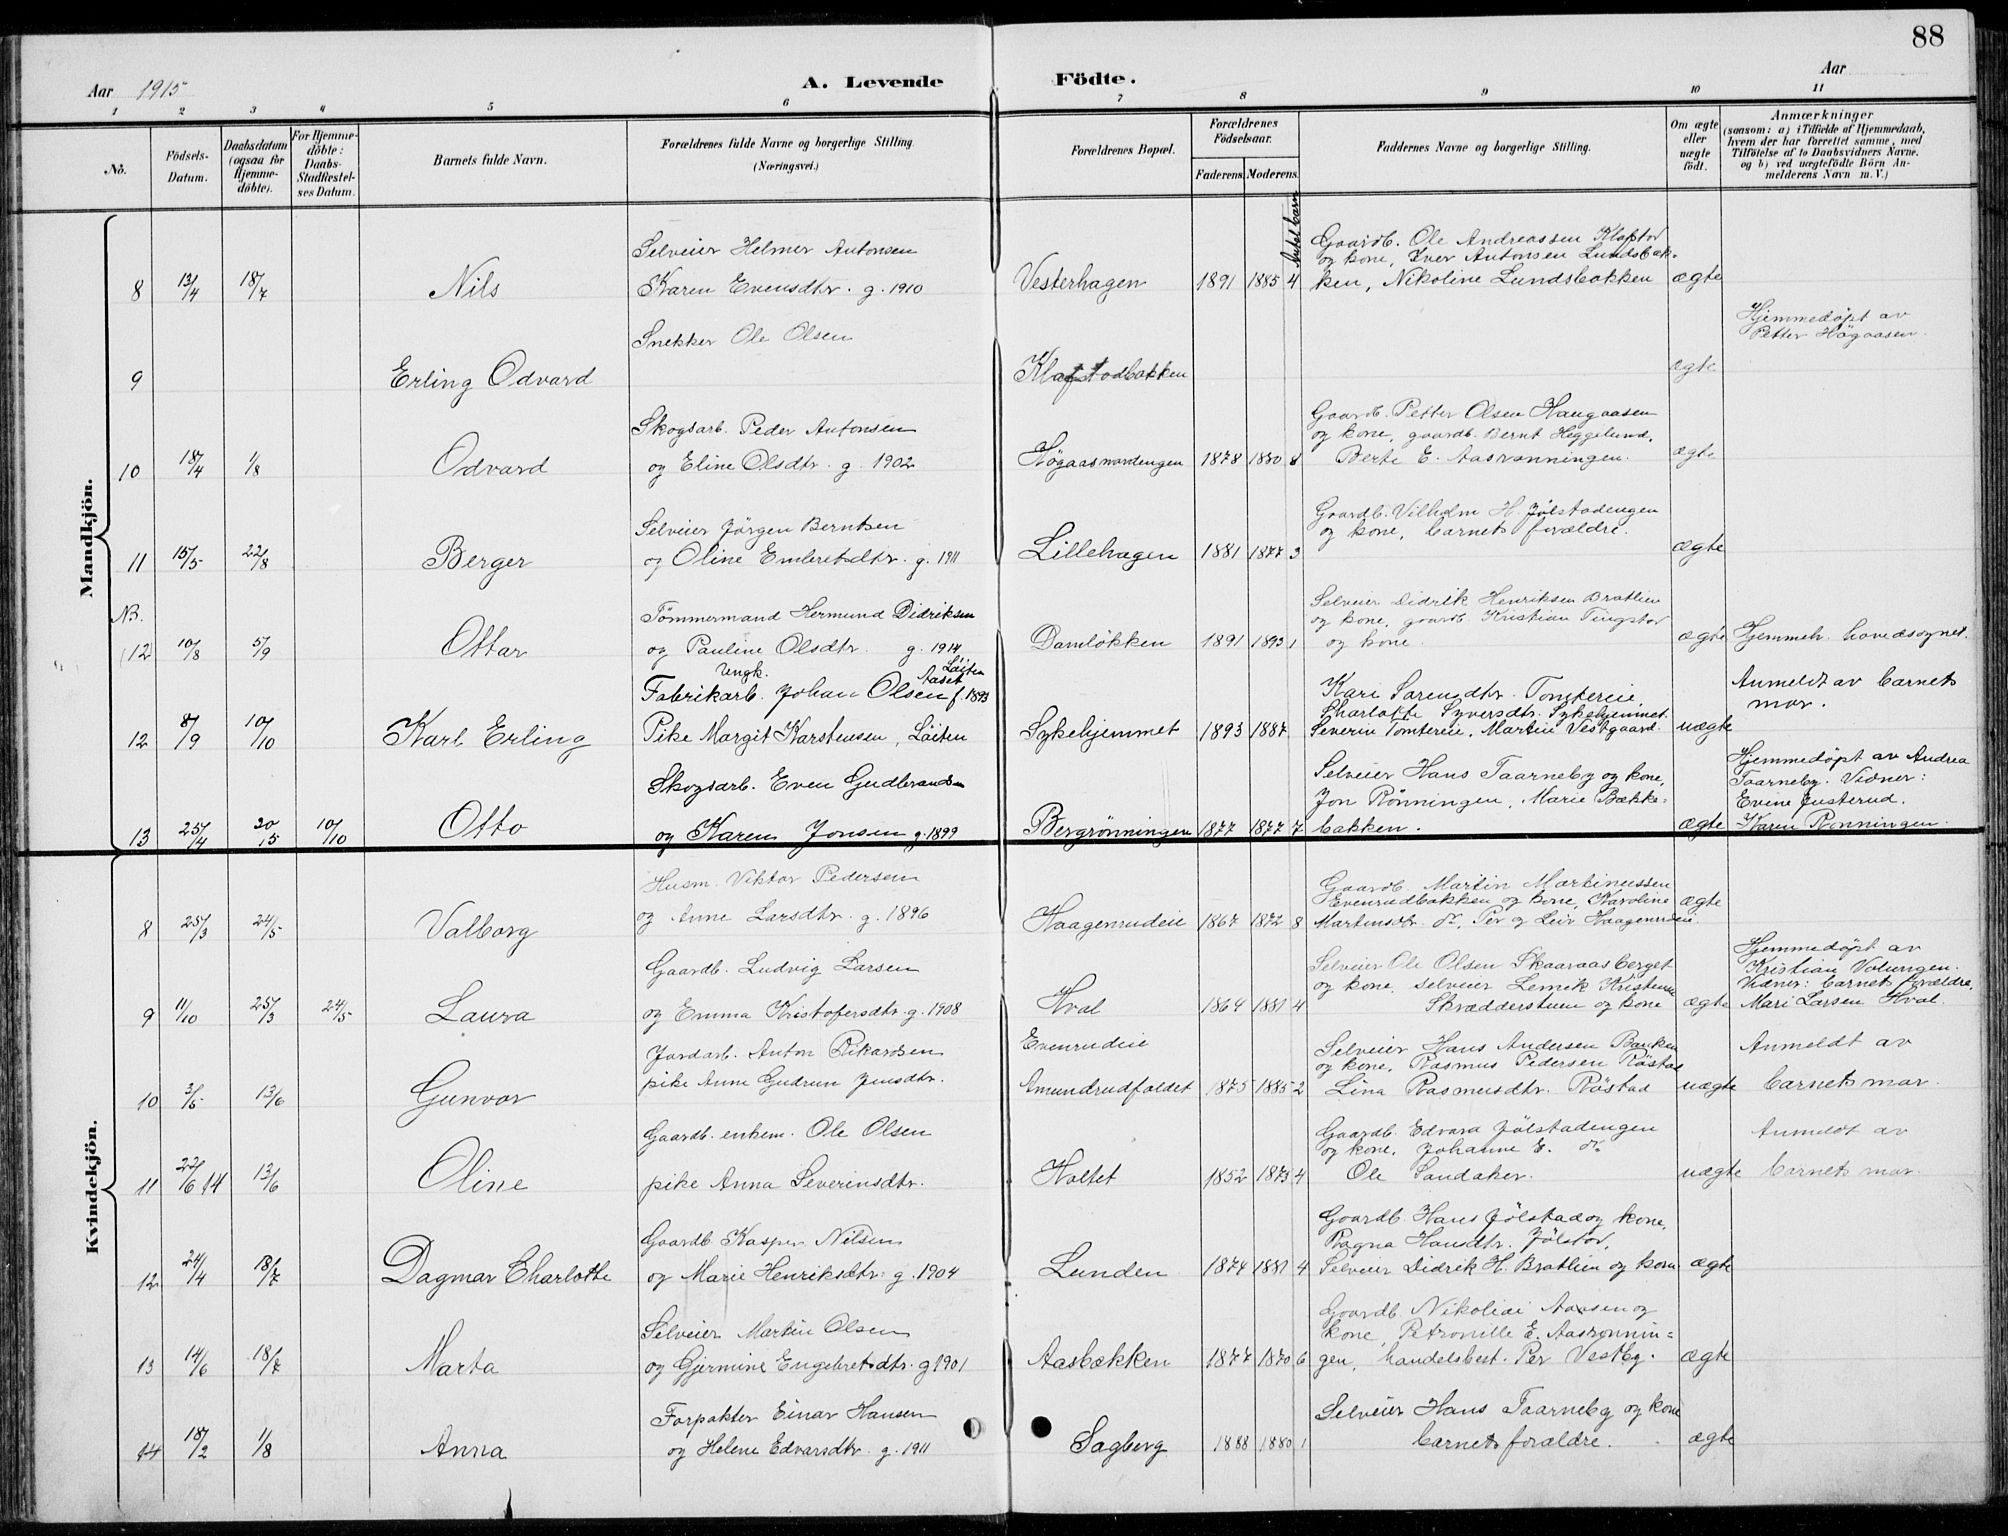 88
Aar 1915
A. Levende Födte.
Aar
1 2 3 4 5 6 7 8 9 10 11
No.
Födsels-Datum.
Daabsdatum (ogsaa for Hjemme-döbte).
For Hjemme-döbte: Daabs-Stadfæstel-ses Datum.
Barnets fulde Navn.
Forældrenes fulde Navne og borgerlige Stilling.
(Næringsvei.)
Forældrenes Bopæl.
Forældrenes Födselsaar.
Faderens. Moderens.
Antal barn
Faddernes Navne og borgerlige Stilling.
Om ægte eller uægte födt.
Anmærkninger
(saasom: a) i Tilfælde af Hjemmedaab, hvem der har forrettet samme, med Tilföielse af to Daabsvidners Navne. og b) ved uægtefödte Börn An-melderens Navn m. V.)
Mandkjön.
Selveier Helmer Antonsen
Gaardb. Ole Andreassen Klafstad
og kone, Iver Antonsen Lundsbak-
8 13/4 18/7 Nils Karen Evensdtr. g. 1910 Vesterhagen 1891 1885 4 ken, Nikoline Lundsbakken ægte
Snekker Ole Olsen
Hjemmedøpt av
Petter Høgaasen.
9 Erling Odvard Klafstadbakken ægte
Skogsarb. Peder Antonsen
Gaardb. Petter Olsen Haugaasen
og kone, gaardb. Bernt Heggelund,
10 18/4 1/8 Odvard og Eline Olsdtr. g. 1902 Høgaasnordengen 1878 1880 8 Berte E. Aasrønningen. ægte
Selveier Jørgen Berntsen
Gaardb. Vilhelm H. Jølstadengen
og kone, barnets forældre.
11 15/5 22/8 Berger og Oline Embretsdtr. g. 1911 Lillehagen 1881 1877 3 ægte
NB.
Tømmermand Hermund Didriksen
Selveier Didrik Henriksen Bratlien
og kone, gaardb. Kristian Tingstad
(12 10/8 5/9 Ottar og Pauline Olsdtr. g. 1914 Damløkken 1891 1893 1 og kone. ægte Hjemmeh. hovedsognet.
Ungk. Aaset Løiten
Fabrikarb. Johan Olsen f. 1893
Kari Sørensdtr. Tomtereie,
Charlotte Syversdtr. Sykehjemmet
Anmeldt av barnets
mor.
12 8/9 10/10 Karl Erling Pike Margit Karstensen, Løiten Sykehjemmet 1893 1887 Severin Tomtereie, Martin Vestgaard. uægte
Skogsarb. Even Gudbrandsen
Selveier Hans Taarneby og kone,
Jon Rønningen, Marie Bække-
Hjemmedøpt av Andrea
Taarneby. Vidner:
Evine Justerud.
13 25/4 20/5 10/10 Otto og Karen Jonsen g. 1899 Bergrønningen 1877 1877 7 bakken. ægte Karen Rønningen.
Kvindekjön.
Husm. Viktor Pedersen
Gaardb. Martin Martinussen
Evenrudbakken og kone, Karoline
8 25/3 24/5 Valborg og Anne Larsdtr. g. 1896 Haagenrudeie 1867 1872 8 Martensdtr. do, Per og Leiv Haagenrudeie. ægte
Gaardb. Ludvig Larsen
Selveier Ole Olsen Skaaraasberget
og kone, selveier Lemek Kristensen
Hjemmedøpt av
Kristian Volungen.
Vidner: barnets forældre,
9 11/10 25/3 24/5 Laura og Emma Kristofersdtr. g. 1908 Hval 1864 1881 4 Skræddersteen og kone ægte Mari Larsen Hval.
Jordarb. Anton Rikardsen
Evenrudeie
Selveier Hans Andersen Bakken
og kone, Rasmus Pedersen Røstad
Anmeldt av
10 3/5 13/6 Gunvor pike Anne Gudrun Jensdtr. Amundrudfaldet 1875 1885 2 Lina Rasmusdtr. Røstad uægte barnets mor.
Gaardb. enkem. Ole Olsen
Gaardb. Edvard Jølstadengen
og kone, Johanne E. do
Anmeldt av
11 22/6 14 13/6 Oline pike Anna Severinsdtr. Holtet 1852 1873 4 Ole Sandaker. uægte barnets mor.
Gaardb. Kasper Nilsen
Gaardb. Hans Jølstad og kone,
Ragna Hansdtr. Jølstad,
12 24/4 18/7 Dagmar Charlotte og Marie Henriksdtr. g. 1904 Lunden 1874 1881 4 Selveier Didrik H. Bratlien og kone ægte
Selveier Martin Olsen
Gaardb. Nikolai Aasen og
kone, Petronille E. Aasrønnin-
13 14/6 18/7 Marta og Gjermine Engebretsdtr. g 1901 Aasbækken 1877 1870 6 gen, handelsbest. Per Vestby. ægte
Forpakter Einar Hansen
Selveier Hans Taarneby og kone
14 18/2 1/8 Anna og Helene Edvardsdtr. g. 1911 Sagberg 1888 1880 1 barnets forældre. ægte